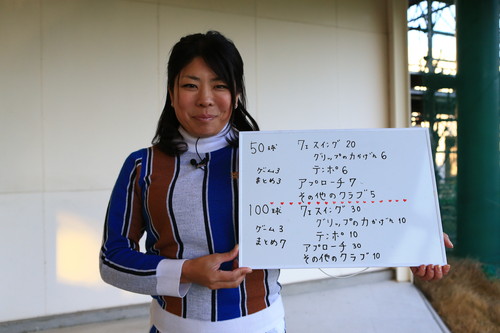 50球 7I スイング 20
グリップの力かげん 6
ゲーム3 テンポ 6
まとめ3 アプローチ 7
その他のクラブ 5
100球 7I スイング 30
グリップの力かげん 10
ゲーム3 テンポ 10
まとめ7 アプローチ 30
その他のクラブ 10